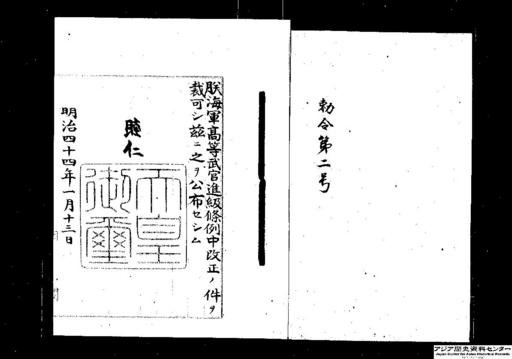 勅令第二号
朕海軍高等武官進級條例中改正ノ件ヲ
裁可シ茲ニ之ヲ公布セシム
睦仁
天皇御璽
明治四十四年一月十三日
アジア歴史資料センター
Japan Center for Asian Historical Records